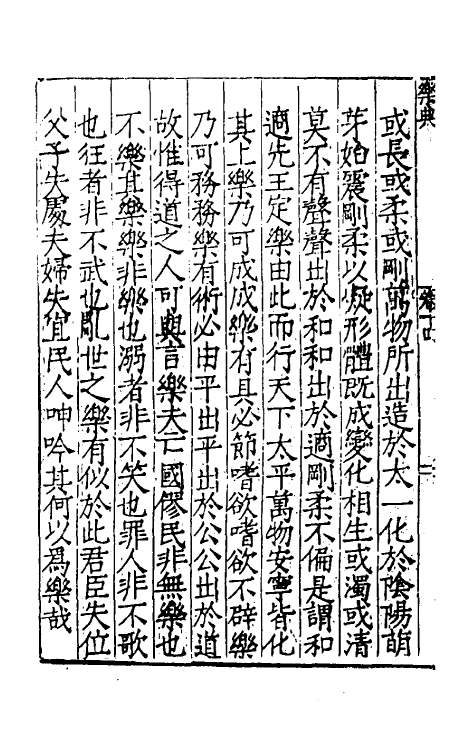 樂典
卷十四
二
或長或柔或剛萬物所出造於太一化於陰陽萌
芽始震剛柔以凝形體既成變化相生或濁或清
莫不有聲聲出於和和出於適剛柔不偏是謂和
適先王定樂由此而行天下太平萬物安寧皆化
其上樂乃可成成樂有具必節嗜欲嗜欲不辟樂
乃可務務樂有術必由平出平出於公公出於道
故惟得道之人可與言樂夫亡國僇民非無樂也
不樂其樂樂非樂也溺者非不笑也罪人非不歌
也狂者非不武也亂世之樂有似於此君臣失位
父子失處夫婦失宜民人呻吟其何以爲樂哉